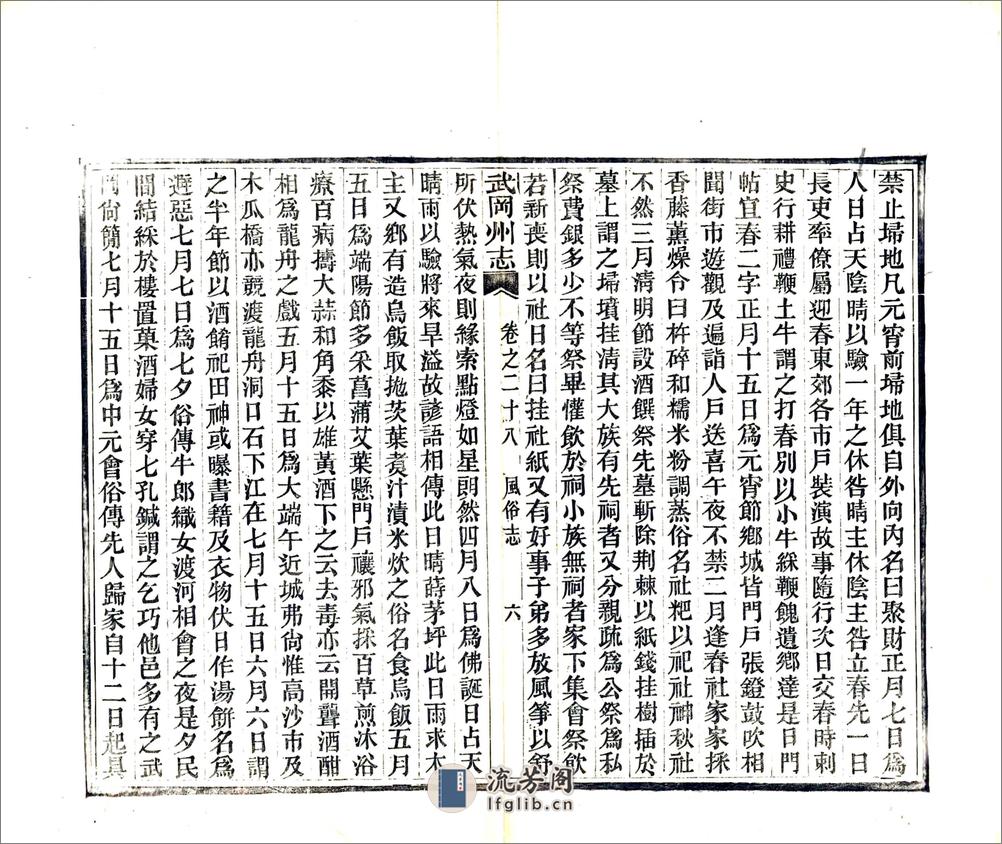 禁止埽地凡元宵前埽地俱自外向內名曰聚財正月七日爲
人日占天陰晴以驗一年之休咎晴主休陰主咎立春先一日
長吏率僚屬迎春東郊各市戶裝演故事隨行次日交春時刺
史行耕禮鞭土牛謂之打春別以小牛綵鞭餽遺鄉達是日門
帖宜春二字正月十五日爲元宵節鄉城皆門戶張鐙鼓吹相
聞街市遊觀及遍詣人戶送喜午夜不禁二月逢春社家家採
香藤薰燥令曰杵碎和糯米粉調蒸俗名社粑以祀社神秋社
不然三月清明節設酒饌祭先墓斬除荆棘以紙錢挂樹插於
墓上謂之埽墳挂清其大族有先祠者又分親疏爲公祭爲私
祭費銀多少不等祭畢懽飲於祠小族無祠者家下集會祭飲
若新喪則以社日名曰挂社紙又有好事子弟多放風箏以舒
武岡州志
卷之二十八 風俗志 六
所伏熱氣夜則緣索點燈如星朗然四月八日爲佛誕日占天
晴雨以驗將來旱溢故諺語相傳此日晴蒔茅坪此日雨求木
主又鄉有造烏飯取拋茨葉煑汁漬米炊之俗名食烏飯五月
五日爲端陽節多采菖蒲艾葉懸門戶禳邪氣採百草煎沐浴
療百病擣大蒜和角黍以雄黃酒下之云去毒亦云開聾酒酣
相爲龍舟之戲五月十五日爲大端午近城弗尙惟高沙市及
木瓜橋亦競渡龍舟洞口石下江在七月十五日六月六日謂
之半年節以酒餚祀田神或曝書籍及衣物伏日作湯餠名爲
避惡七月七日爲七夕俗傳牛郎織女渡河相會之夜是夕民
間結綵於樓置菓酒婦女穿七孔鍼謂之乞巧他邑多有之武
岡尙簡七月十五日爲中元會俗傳先人歸家自十二日起具
流芳阁
lfglib.cn